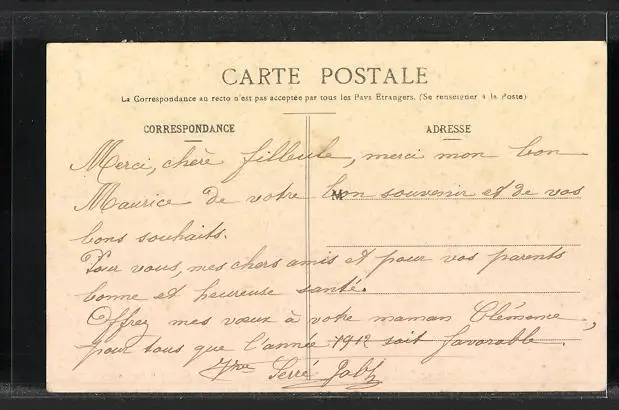 CARTE POSTALE
La Correspondance au recto n'est pas acceptée par tous les Pays Etrangers. (Se renseigner à la Poste)
CORRESPONDANCE
ADRESSE
M
Merci, chère filleule, merci mon bon
Maurice de votre bon souvenir et de vos
bons souhaits.
Pour vous, mes chers amis et pour vos parents
bonne et heureuse santé.
Offrez mes vœux à votre maman Clémence,
pour tous que l'année 1912 soit favorable.
Serré